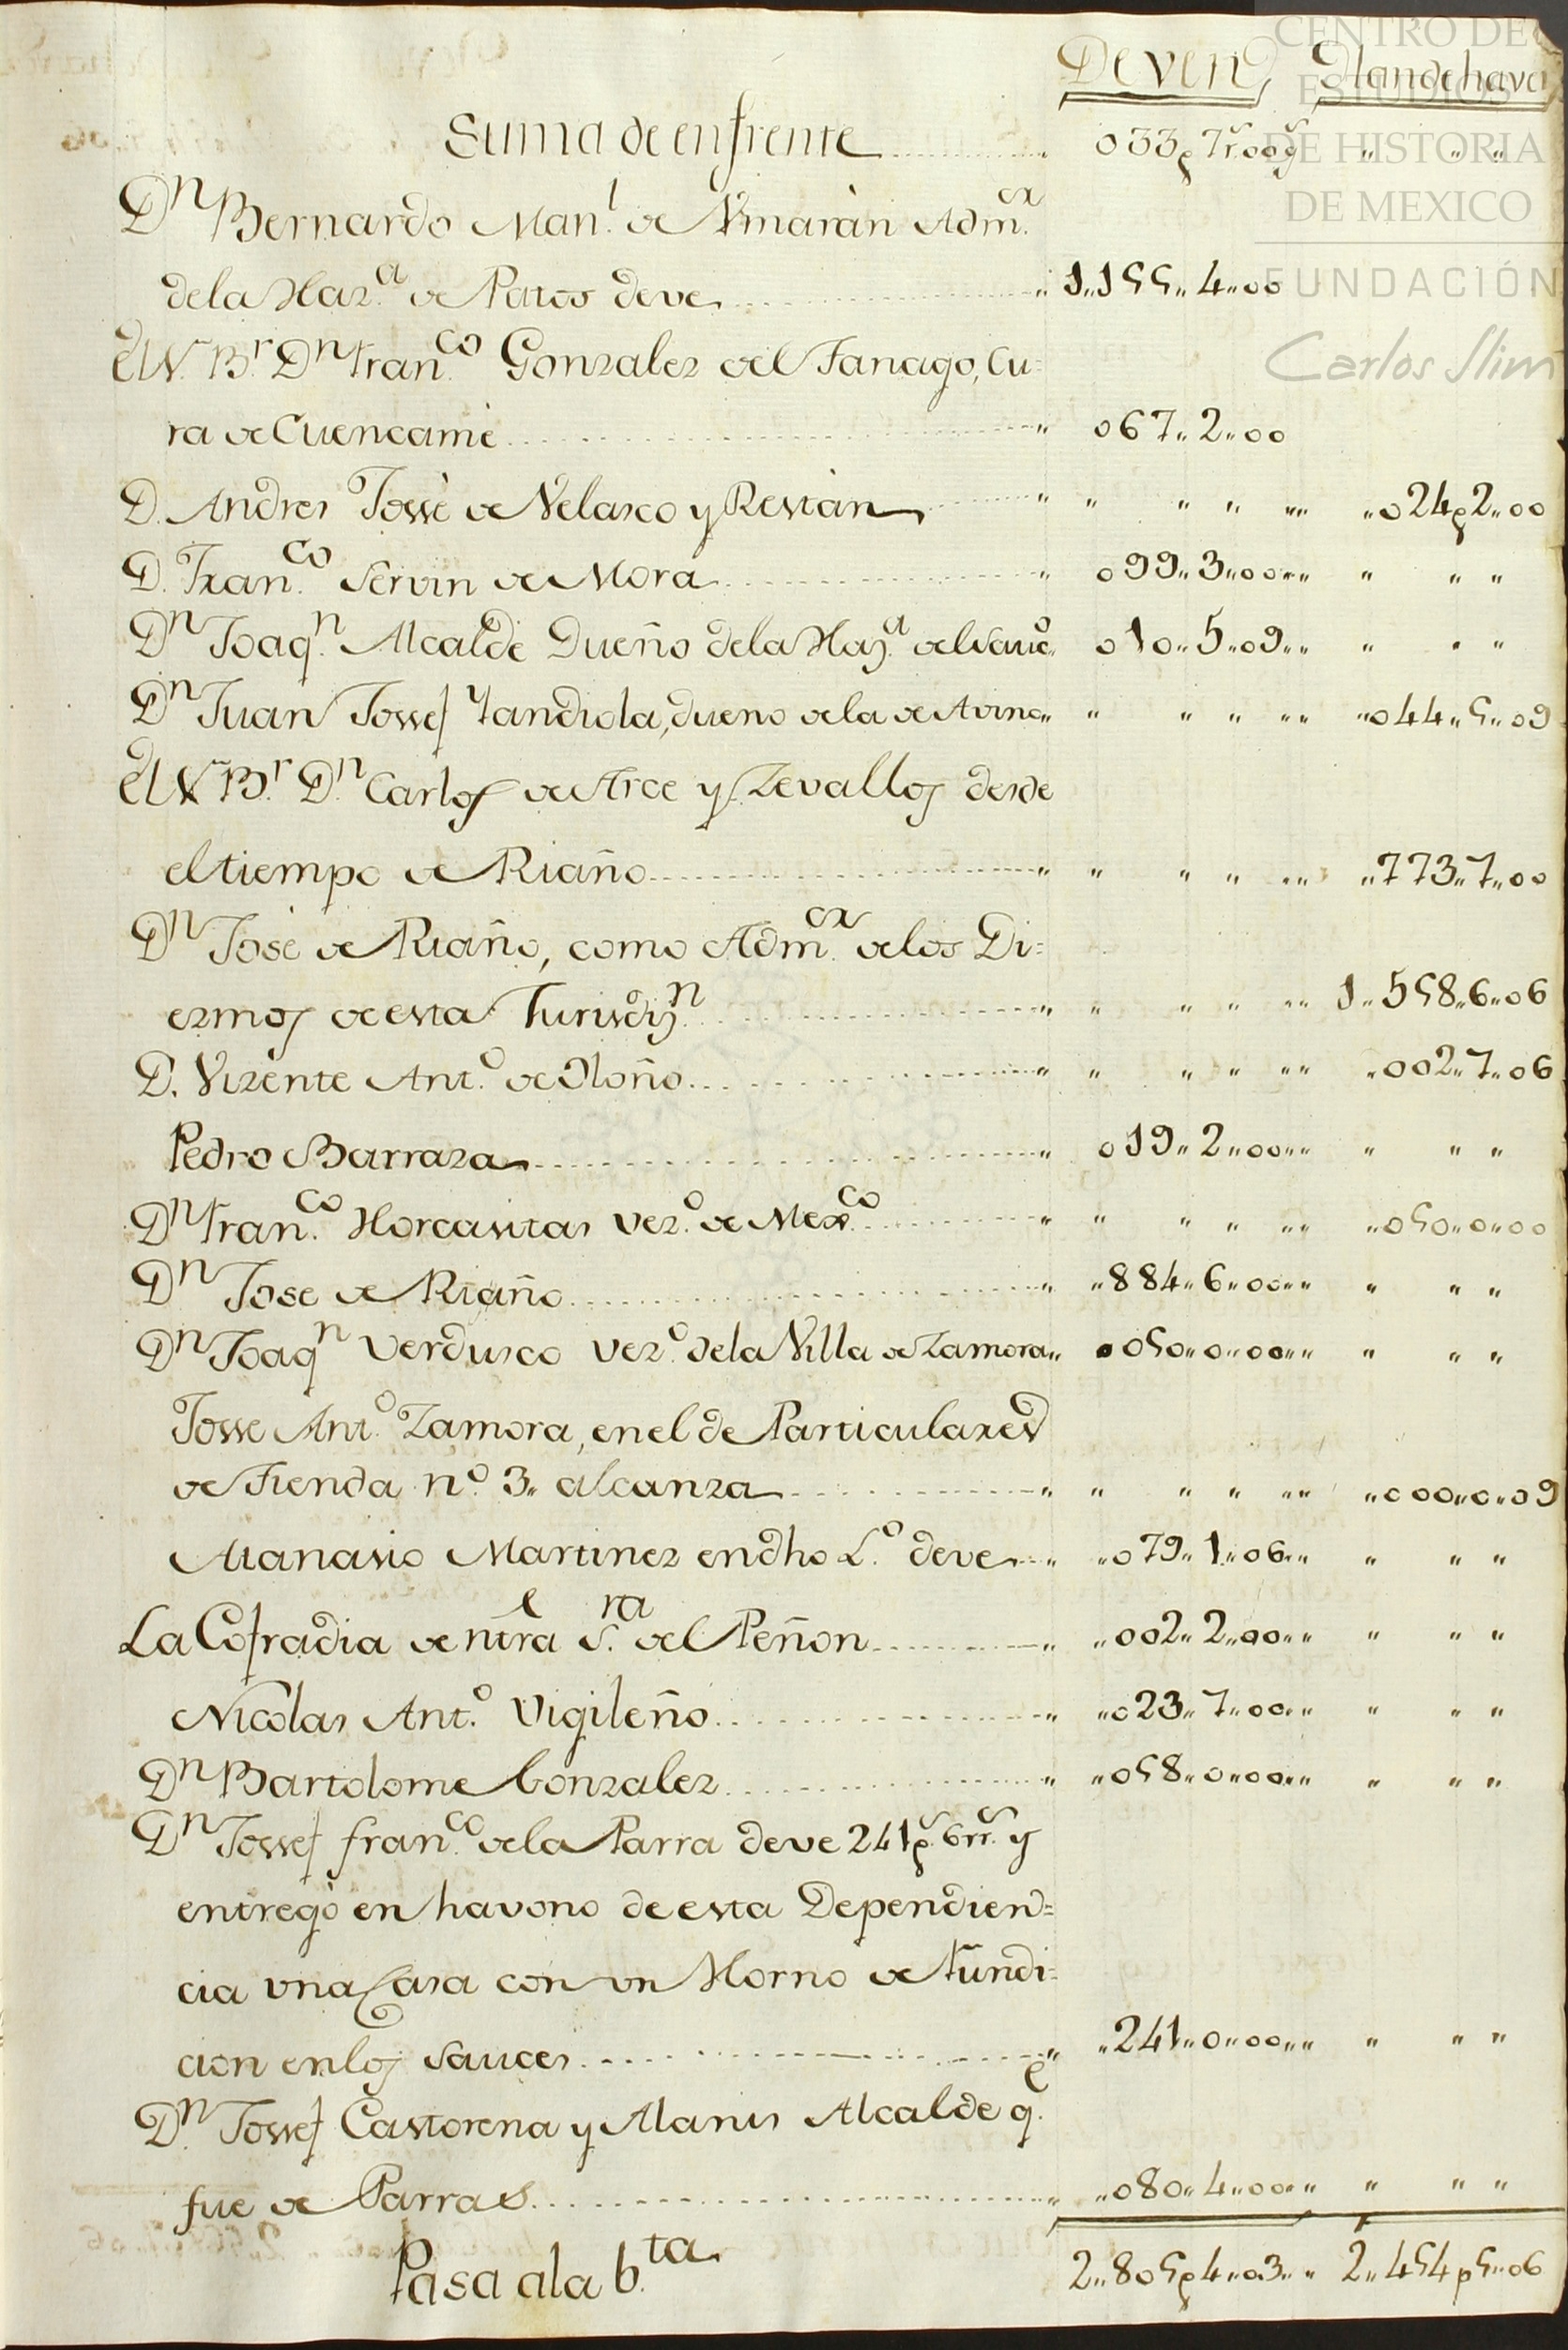 Deven, Han de haver
Suma de enfrente 033p.s 7r.s 00g.s " " "
Dn Bernardo Man.l de Vmarán Adm.or
dela Haz.a de Patos deve " 1"155" 4" 00
El S.r B.r Dn Fran.co Gonzalez del Tanago, Cu=
ra de Cuencamé " 067" 2" 00
D. Andres Jossè de Velasco y Restàn " " " " " " 024p2" 00
D. Fran.co Servin de Mora " 099" 3" 00 " " " "
Dn Joaq.n Alcalde Dueño dela Haz.a del Sauce " 010" 5" 09 " " " "
Dn Juan Jossef Yandiola, dueno dela de Avino " " " " " " 044" 5" 09
El S.r B.r D.n Carlos de Arce y Zevallos desde
el tiempo de Riaño " " " " " " 773" 7" 00
Dn José de Riaño, como Adm.or delos Di=
ezmos de esta Jurisdi.n " " " " " 1" 558" 6" 06
D. Vizente Ant.o de Oloño " " " " " " 002" 7" 06
Pedro Barraza " 019" 2" 00 " " " "
Dn Fran.co Horcasitas vez.o de Mex.co " " " " " " 050" 0" 00
Dn Jose de Riaño " 884" 6" 00 " " " "
Dn Joaqn Verdusco vez.o dela Villa de Zamora " 050" 0" 00 " " " "
Josse Ant.o Zamora, en el de Particulares
de Tienda n.o 3" alcanza " " " " " " 000" 0" 09
Atanasio Martinez en dho L.o deve " 079" 1" 06 " " " "
La Cofradia de ntra S.ra del Peñon " 002" 2" 00 " " " "
Nicolas Ant.o Vigileño " 023" 7" 00 " " " "
Dn Bartolome Gonzalez " 058" 0" 00 " " " "
Dn Jossef fran.co dela Parra deve 241p.s 6rr.s y
entregò en havono de esta Dependien=
cia vna Casa con vn Horno de Fundi=
cion en los Sauces " 241" 0" 00 " " " "
D.n Jossef Castorena y Alanis Alcalde q.e
fue de Parras " 080" 4" 00 " " " "
Pasa ala b.ta 2" 805p4" 03 " 2" 454p5" 06
CENTRO DE
ESTUDIOS
DE HISTORIA
DE MEXICO
FUNDACIÓN
Carlos Slim